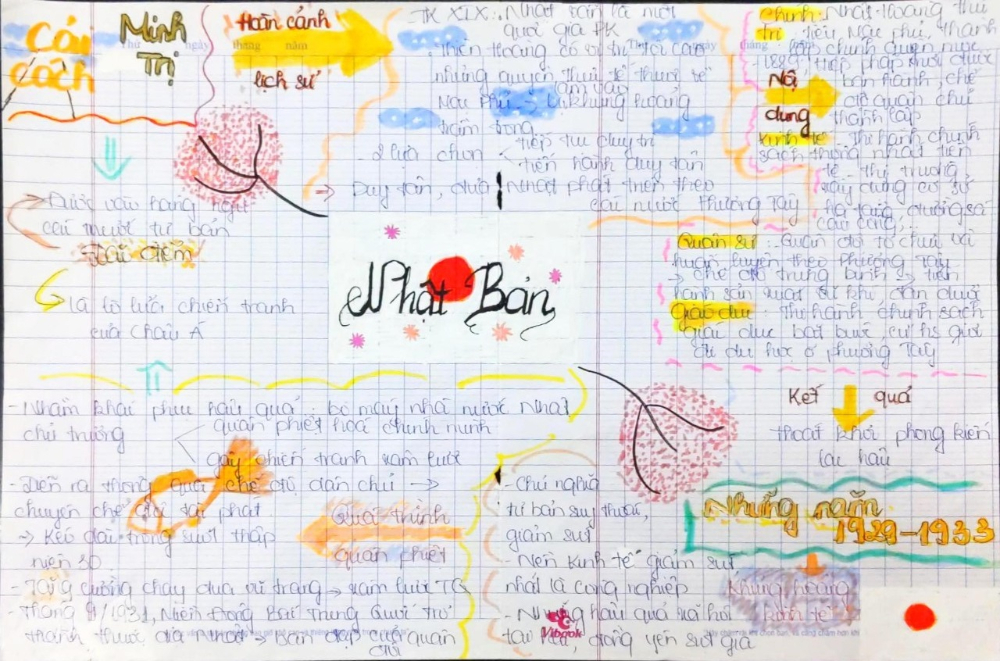 Cải
cách
Minh
Trị
Hoàn cảnh
lịch sử
TK XIX: Nhật Bản là một
quốc gia PK
những quyền
Mạc Phủ → khủng hoảng
trầm trọng
2 lựa chọn
tiếp tục duy trì
tiến hành duy tân
→ Duy tân, đưa Nhật phát triển theo
các nước phương Tây
Nội
dung
Chính
trị
ban hành, chế
độ quân chủ
thành lập
Kinh tế: Thi hành chính
sách thống nhất tiền
tệ, thị trường
xây dựng cơ sở
hạ tầng, đường sá
cầu cống,
Quân sự: Quân đội tổ chức và
huấn luyện theo phương Tây
→ chế độ trưng binh → tiến
hành sản xuất vũ khí, đạn dược
Giáo dục: Thi hành chính sách
giáo dục bắt buộc, cử hs giỏi
đi du học ở phương Tây
Kết quả
thoát khỏi phong kiến
lạc hậu
→ Được vào hàng ngũ
các nước tư bản
Đặc điểm
là lò lửa chiến tranh
của Châu Á
Nhật Bản
Những năm
1929-1933
Khủng hoảng
kinh tế
- Chủ nghĩa
tư bản suy thoái,
giảm sút
- Nền kinh tế giảm sút
nhất là công nghiệp
- Những hậu quả xã hội
tai hại, đồng yên sụt giá
Quá trình
Quân phiệt
- Nhằm khắc phục hậu quả, bộ máy nhà nước Nhật
chủ trương
quân phiệt hoá chính mình
gây chiến tranh xâm lược
- Diễn ra thông qua chế độ dân chủ →
chuyên chế
→ Kéo dài trong suốt thập
niên 30
- Tăng cường chạy đua vũ trang → xâm lược TQ
- Tháng 9/1931, Miền Đông Bắc Trung Quốc trở
thành thuộc địa Nhật → bàn đạp
quân
Vibook